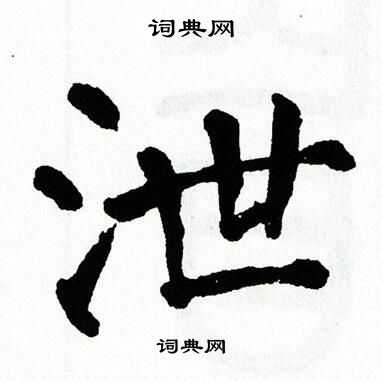 词典网
泄
词典网